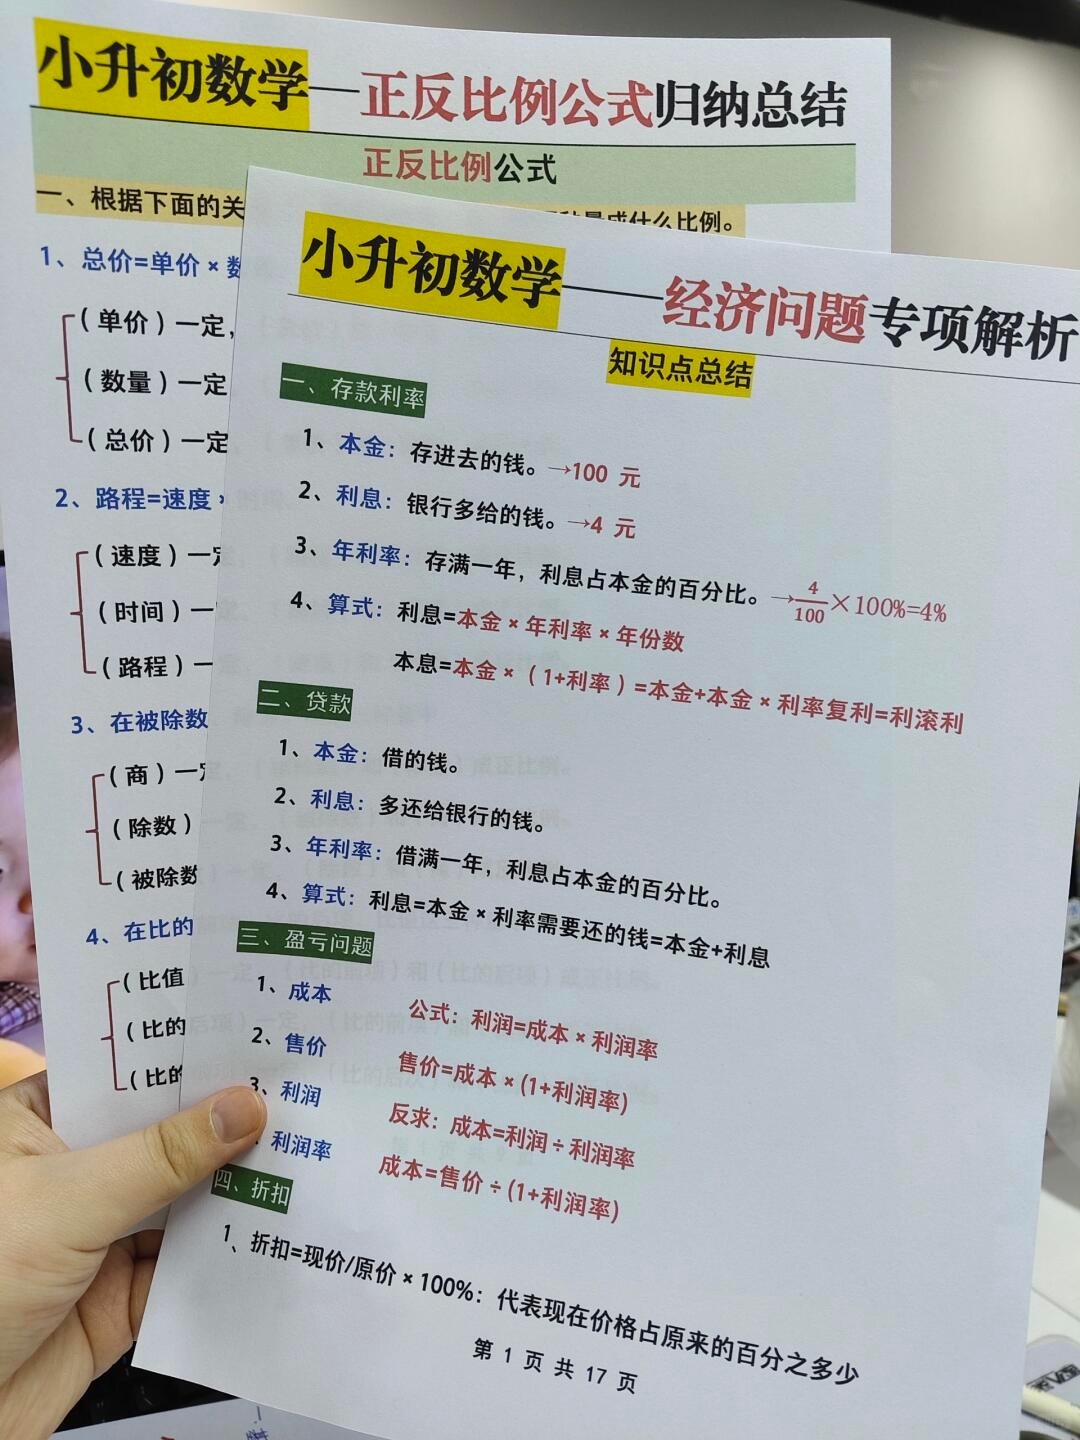 小升初数学—正反比例公式归纳总结
正反比例公式
一、根据下面的关
成什么比例。
1、总价=单价×数
（单价）一定，
（数量）一定
（总价）一定
2、路程=速度×
（速度）一定
（时间）一
（路程）一
3、在被除数
（商）一定
（除数）
（被除数
4、在比的
（比值
（比的
（比的
小升初数学——经济问题专项解析
知识点总结
一、存款利率
1、本金：存进去的钱。→100 元
2、利息：银行多给的钱。→4 元
3、年利率：存满一年，利息占本金的百分比。→4/100×100%=4%
4、算式：利息=本金×年利率×年份数
本息=本金×（1+利率）=本金+本金×利率复利=利滚利
二、贷款
1、本金：借的钱。
2、利息：多还给银行的钱。
3、年利率：借满一年，利息占本金的百分比。
4、算式：利息=本金×利率需要还的钱=本金+利息
三、盈亏问题
1、成本 公式：利润=成本×利润率
2、售价 售价=成本×(1+利润率)
3、利润 反求：成本=利润÷利润率
、利润率 成本=售价÷(1+利润率)
四、折扣
1、折扣=现价/原价×100%：代表现在价格占原来的百分之多少
第 1 页 共 17 页